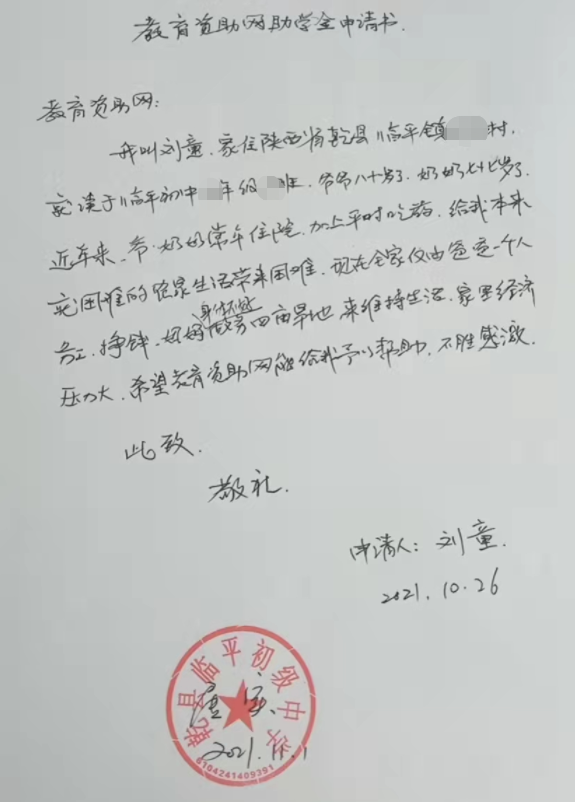 教育资助网助学金申请书.
教育资助网:
我叫刘童、家住陕西省乾县临平镇 村,
就读于临平初中 年级 班. 爷爷八十岁了. 奶奶七十七岁了.
近年来、爷.奶奶常年住院、加上平时吃药、给我本来
就困难的 家生活带来困难. 现在全家仅由爸爸一个人
务工、挣钱、妈妈 四亩旱地 来维持生活、家里经济
压力大、希望教育资助网能给我予以帮助、不胜感激.
此致.
敬礼.
申请人: 刘童.
2021.10.26
乾县临平初级中学
属实.
2021.11.1
6104241409391